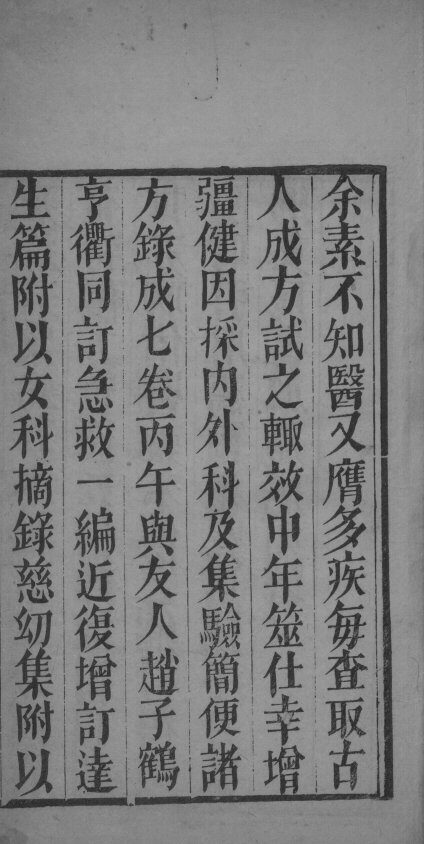 余素不知醫又膺多疾每查取古
人成方試之輙效中年筮仕幸增
疆健因採内外科及集驗簡便諸
方錄成七卷丙午與友人趙子鶴
亭衢同訂急救一編近復增訂達
生篇附以女科摘錄慈幼集附以